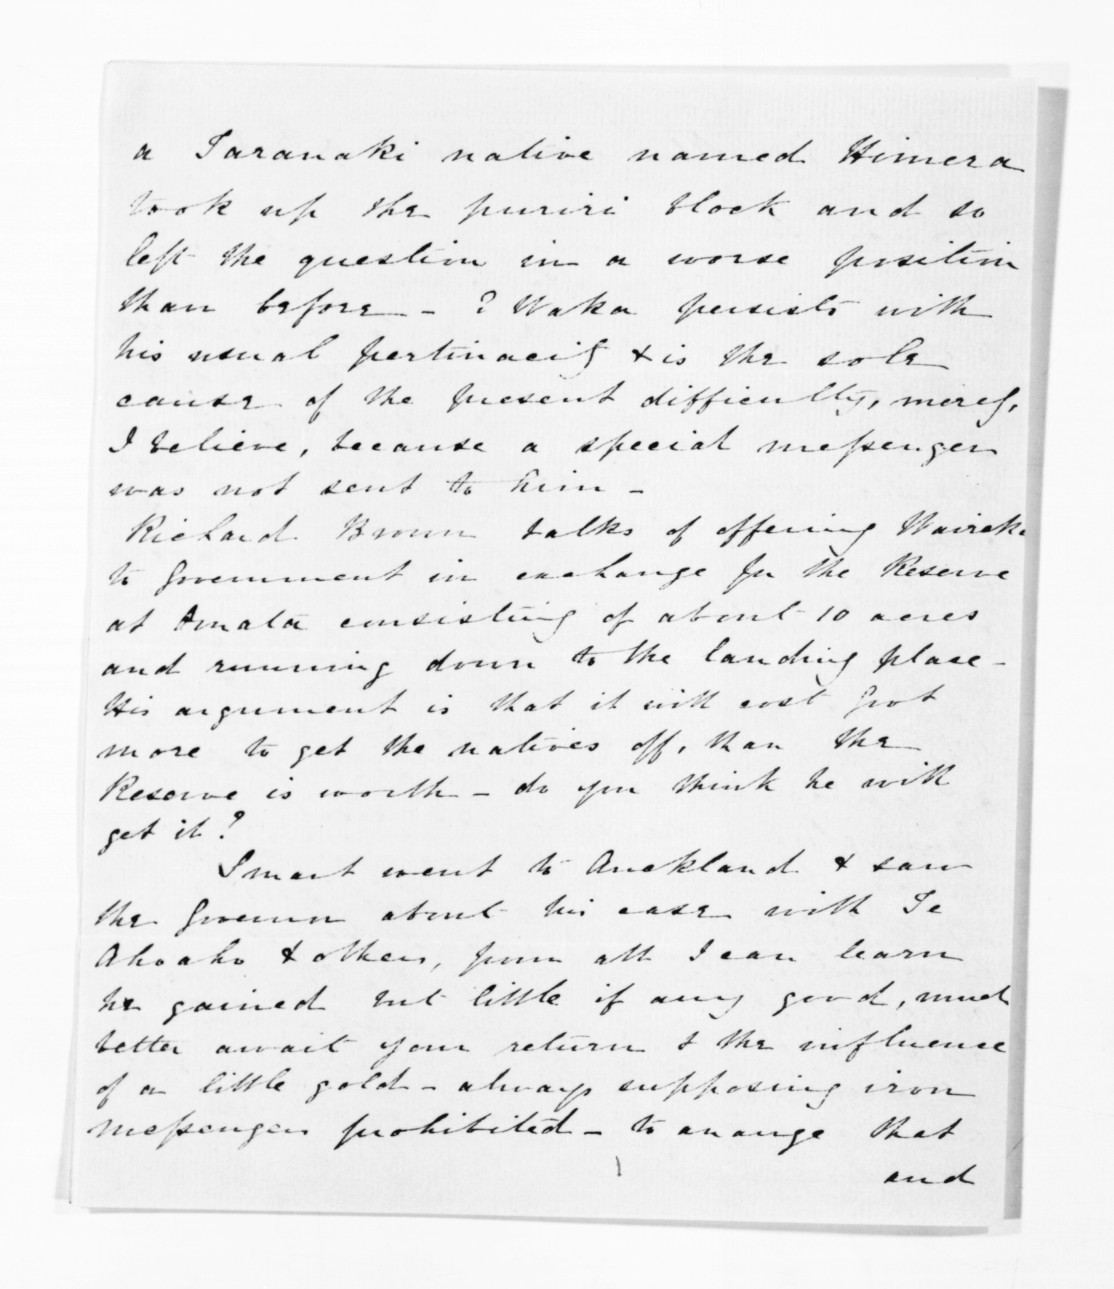 a Taranaki native named Himera
took up the puriri block and so
left the question in a worse position
than before - ? Waka persists with
his usual pertinacity & is the sole
cause of the present difficulty, merely,
I believe, because a special messenger
was not sent to him -
Richard Brown talks of offering Waireka
to Government in exchange for the Reserve
at Amata consisting of about 10 acres
and running down to the landing place -
His argument is that it will cost Govt
more to get the natives off, than the
Reserve is worth - do you think he will
get it?
Smart went to Auckland & saw
the Governor about his case with Te
Ahoaho & others, from all I can learn
he gained but little if any good, much
better await your return & the influence
of a little gold - always supposing iron
messengers prohibited - to arrange that
and